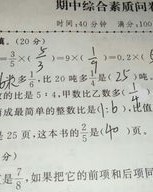 期中综合素质问卷
时间:40分钟 满分:100
填。(20分)
=3/5×(5/3)=9×(1/9)=0.2×(
米多1/6,比20吨多1/4是(25)吨。
数的比是5:4,甲数比乙数多(1/4)
成最简单的整数比是(1:6),比值
是25页,这本书的2/5是(40)页。
分)
是7/8,如果把它的前项和后项同